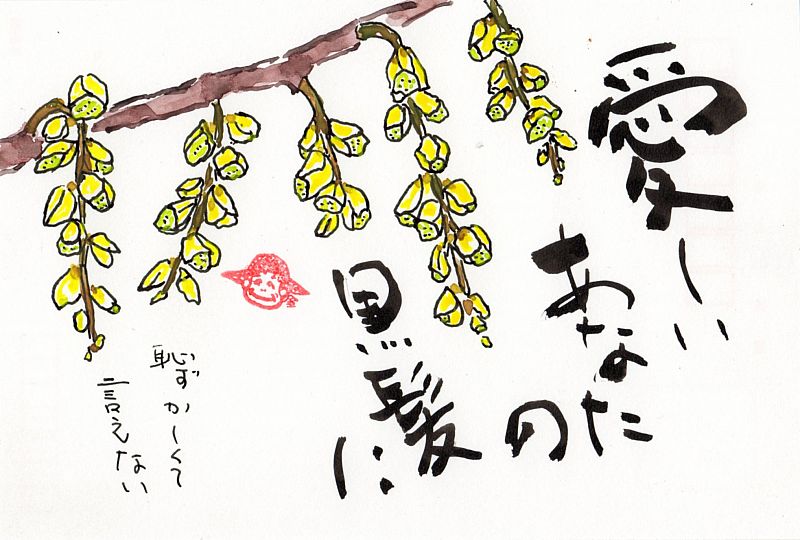 愛しい
あなた
の
黒髪
に
恥ずかしくて
言えない